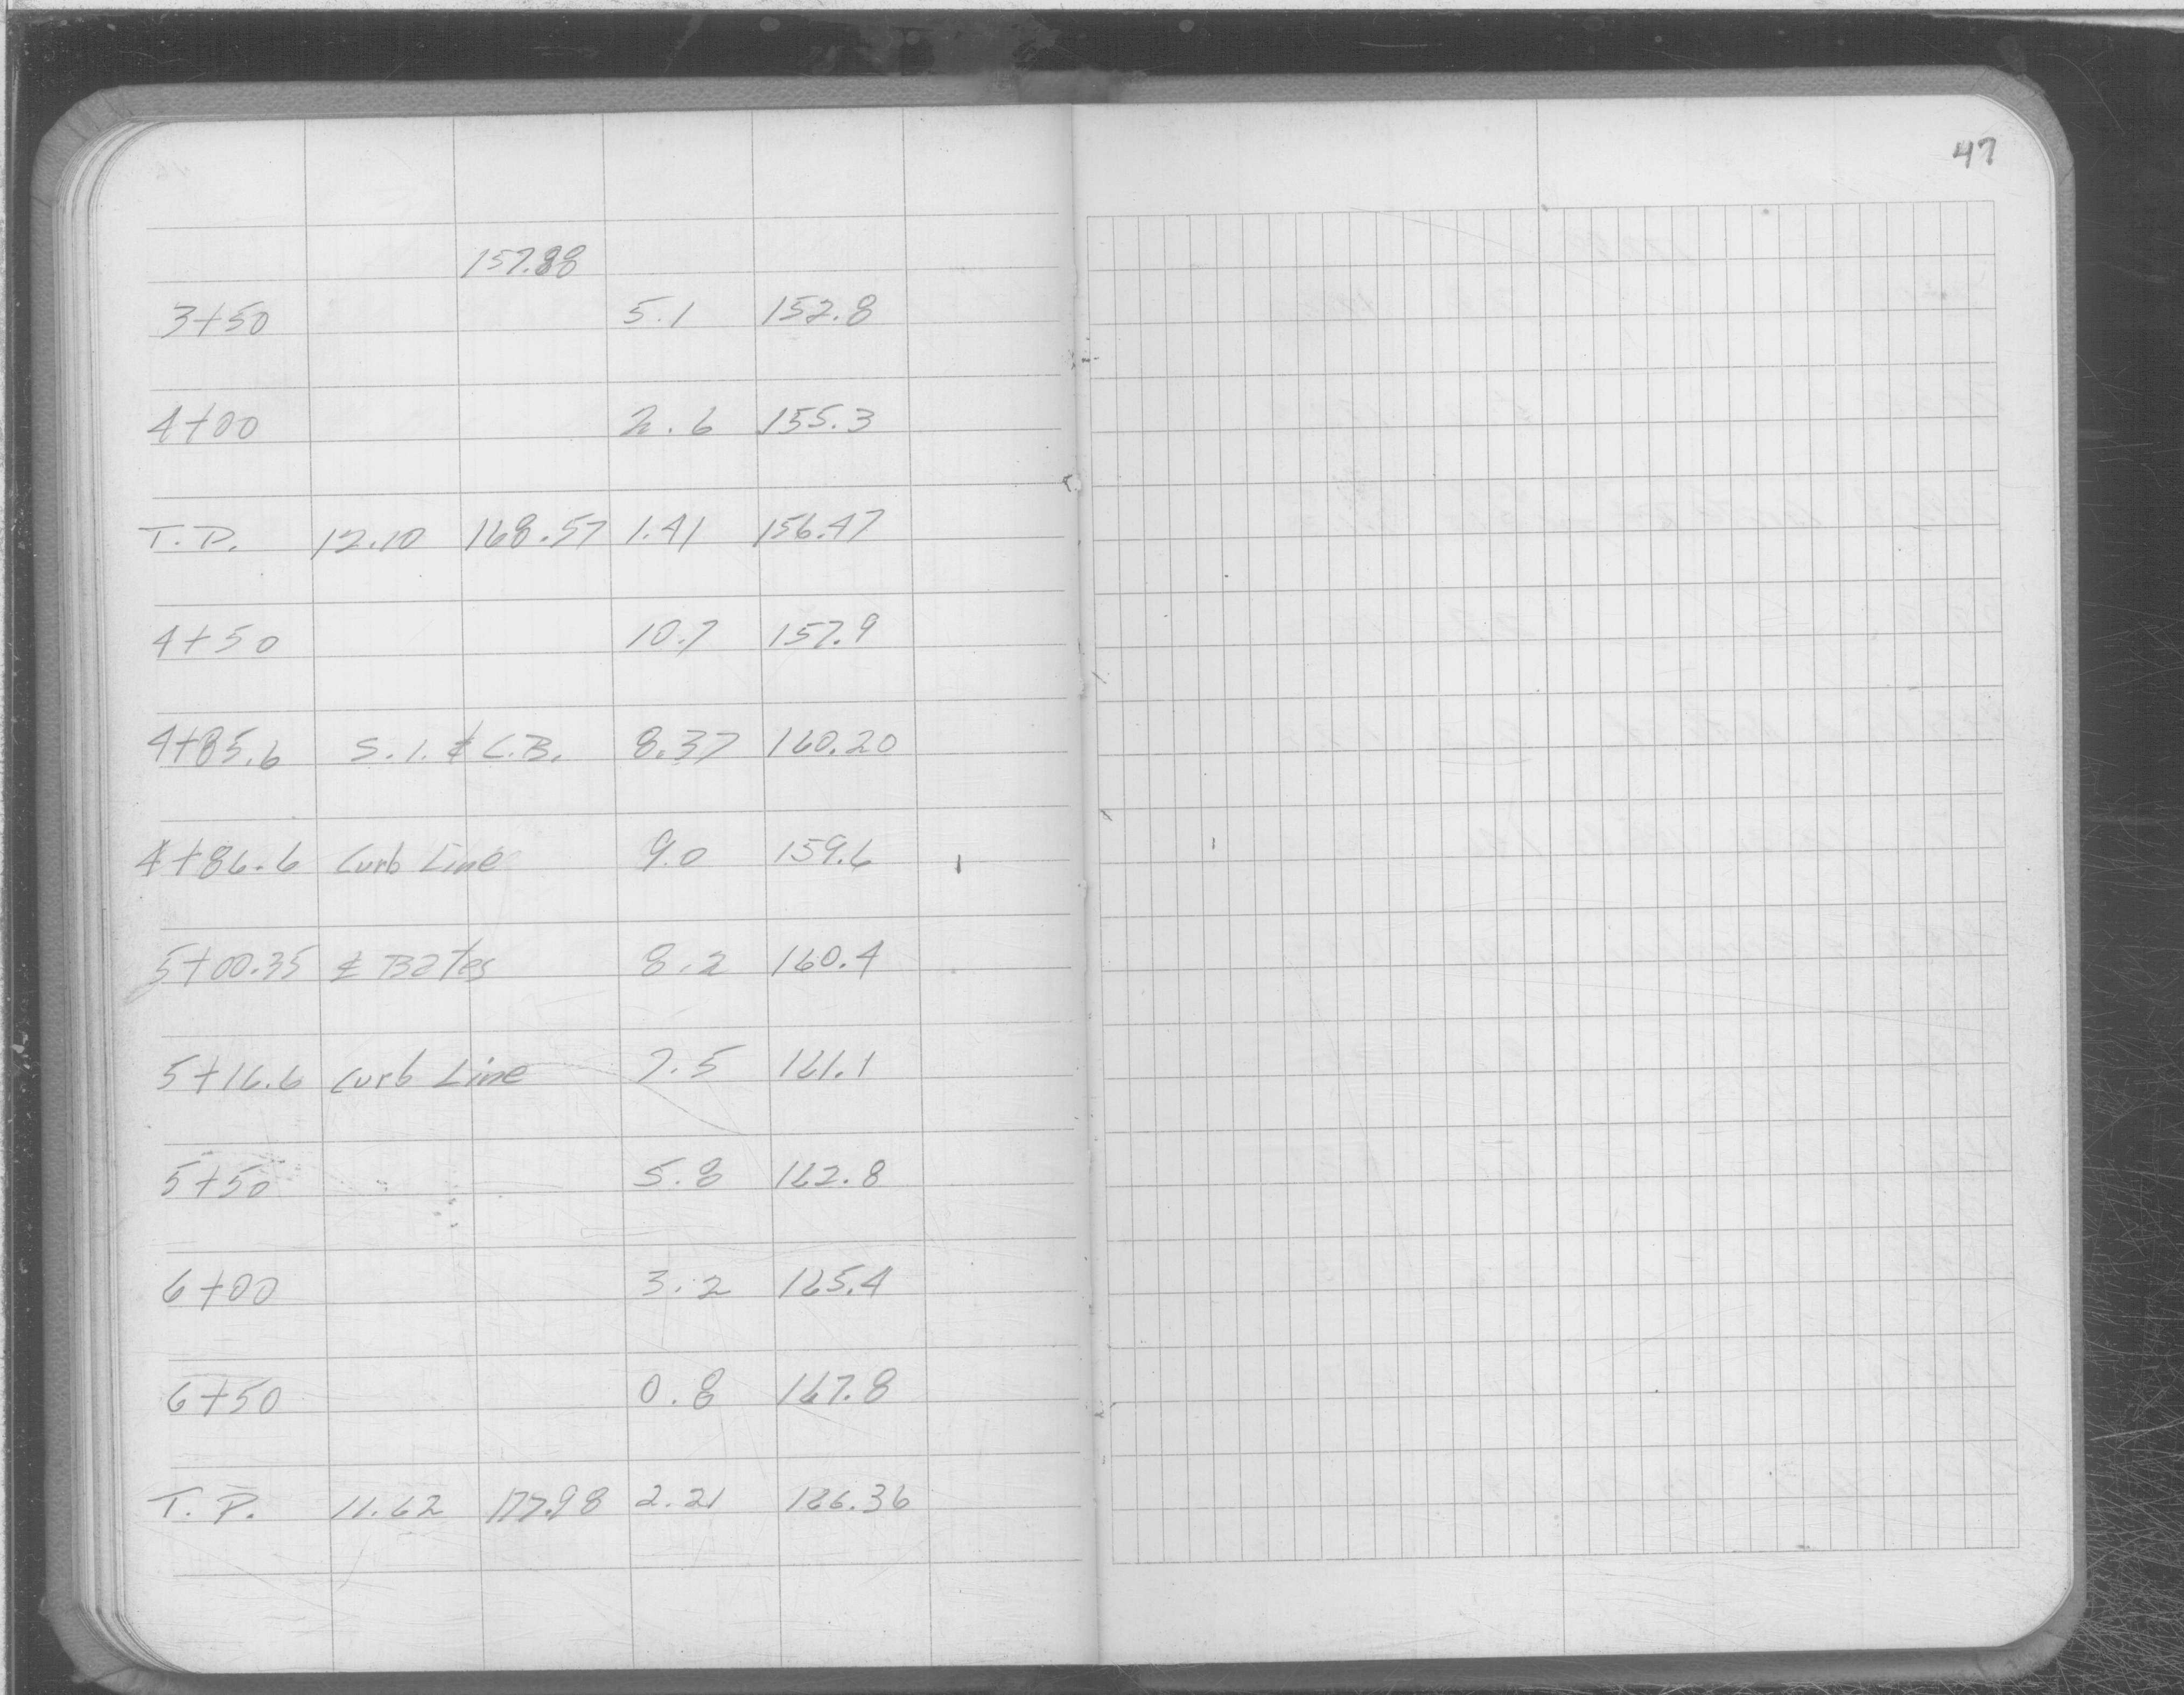 47
157.88
3+50 5.1 152.8
4+00 2.6 155.3
T.P. 12.10 168.57 1.41 156.47
4+50 10.7 157.9
4+85.6 S.I. ¢ C.B. 8.37 160.20
4+86.6 Curb Line 9.0 159.6
5+00.35 ¢ Bates 8.2 160.4
5+16.6 Curb Line 7.5 161.1
5+50 5.8 162.8
6+00 3.2 165.4
6+50 0.8 167.8
T.P. 11.62 177.98 2.21 166.36